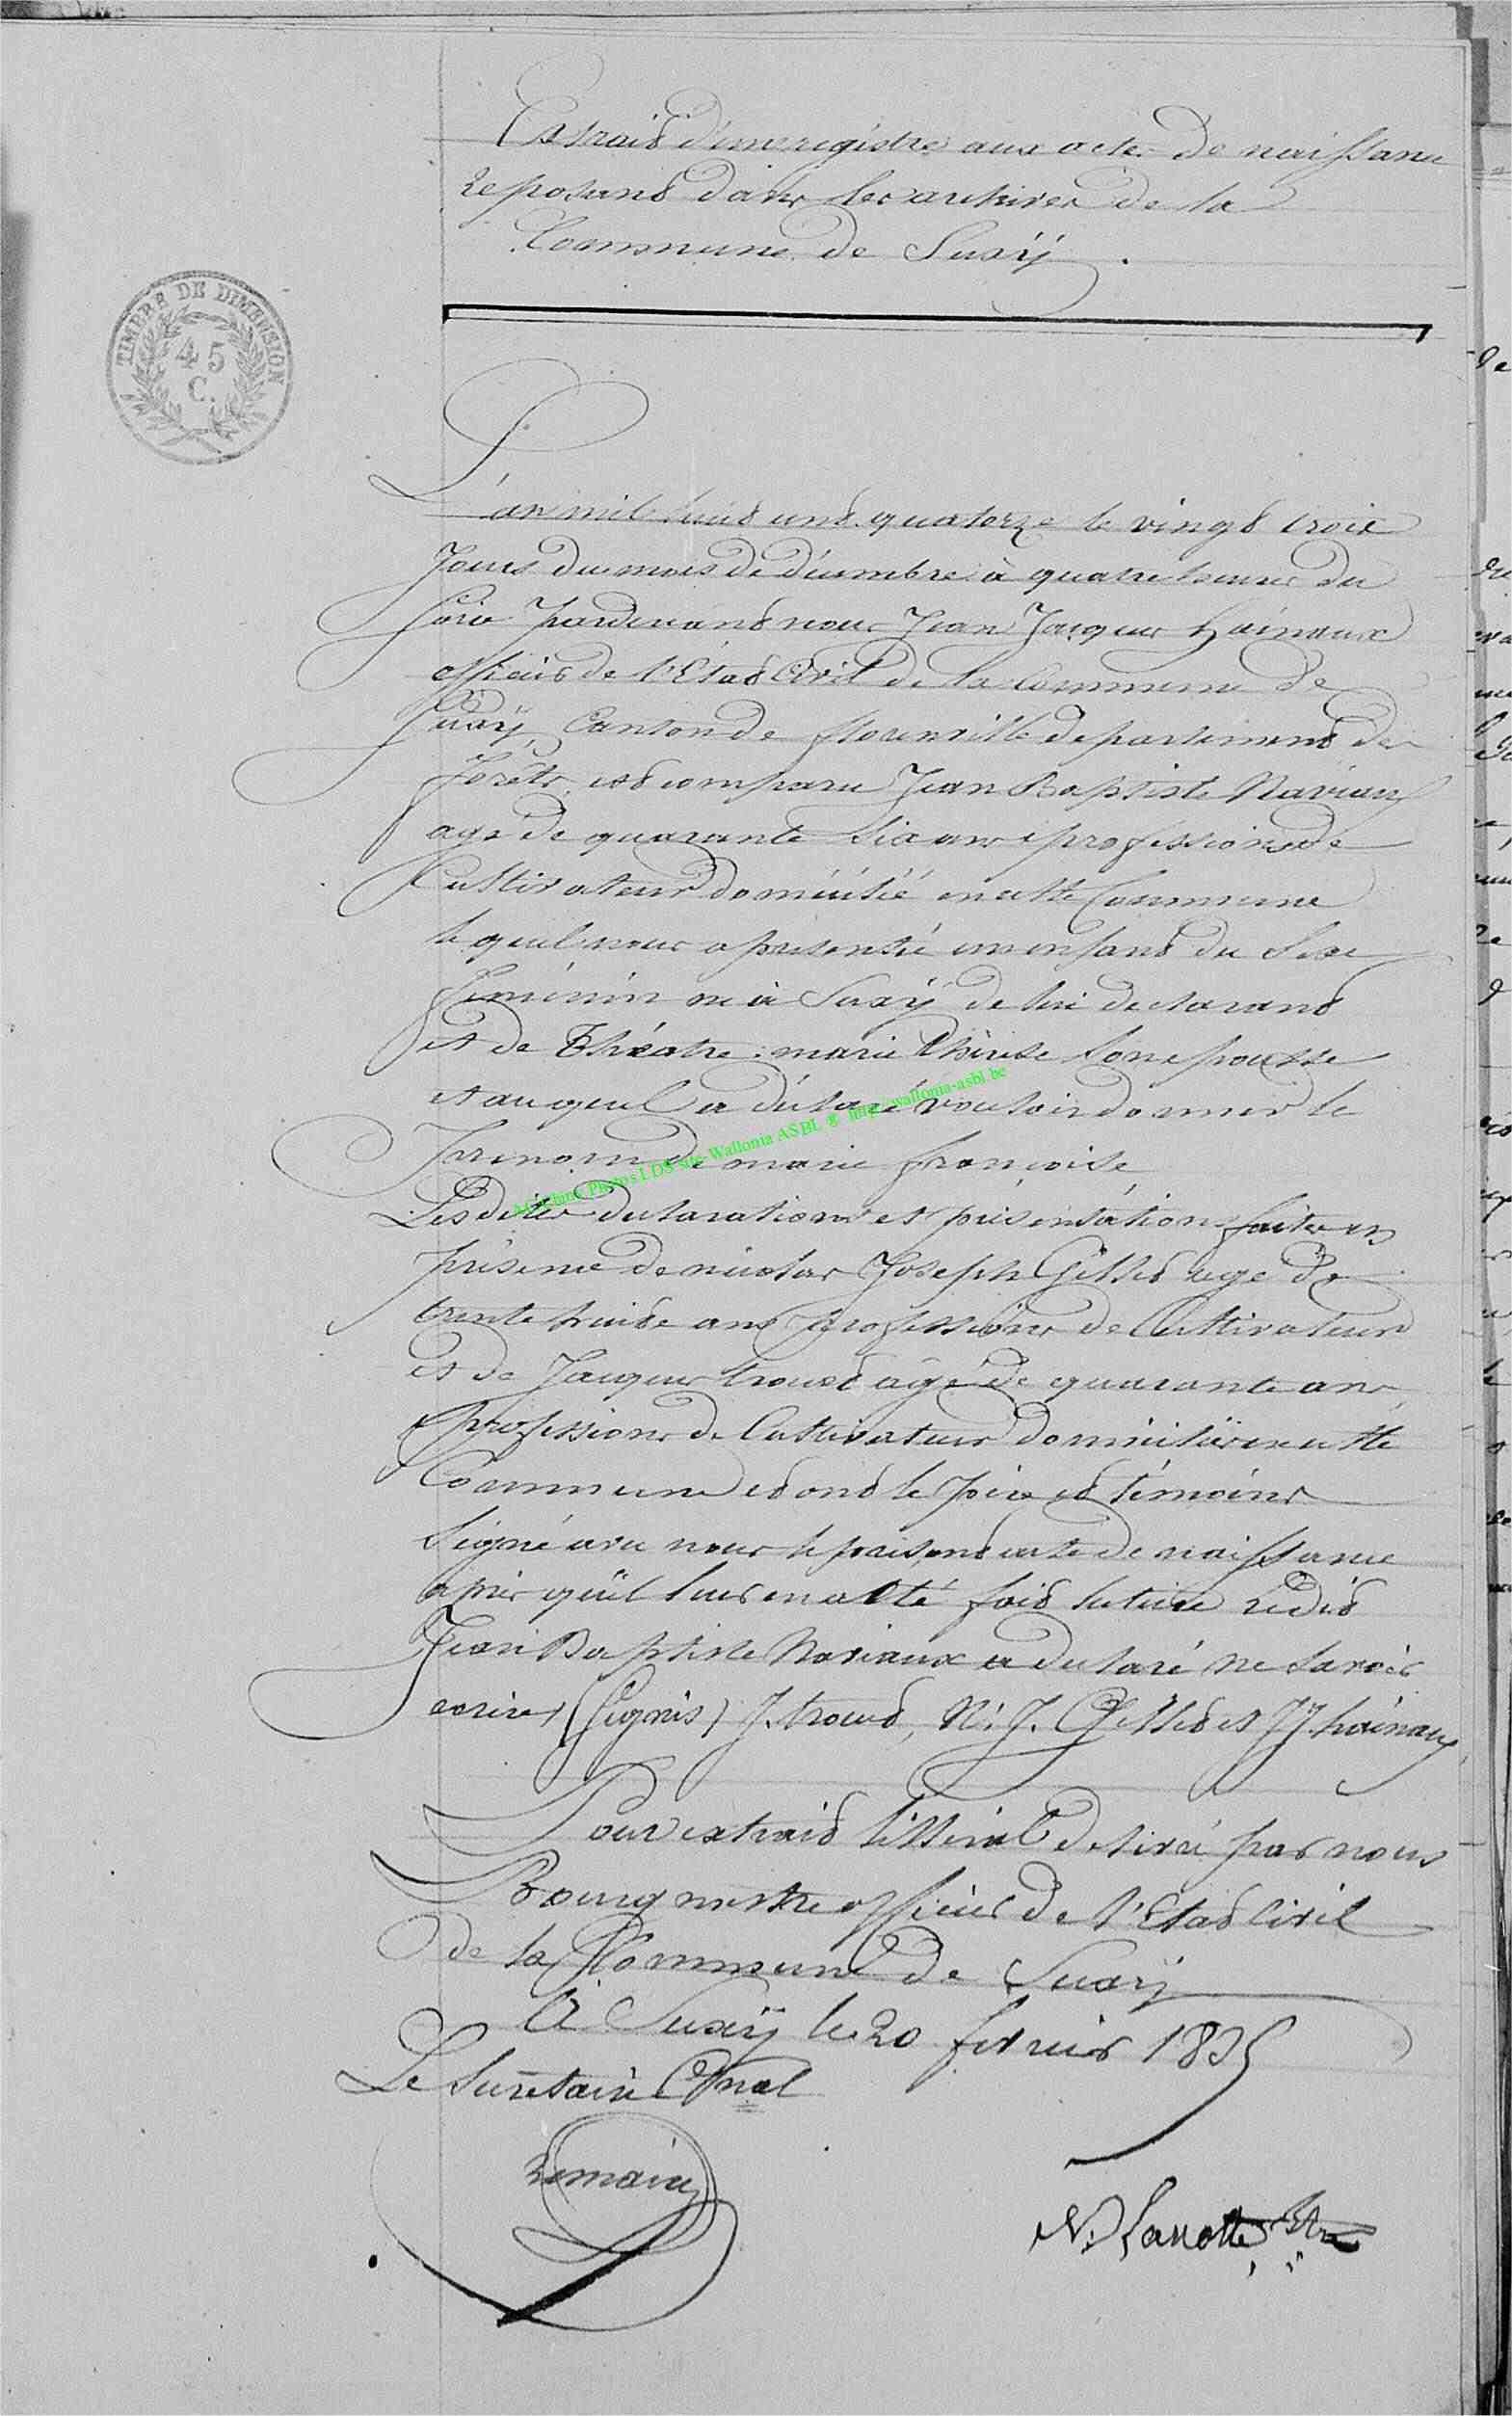 Extrait d'une registre aux actes de naissance
Reposant dans les archives de la
Commune de Suxÿ.
TIMBRE DE DIMENSION
45
C.
L'an mil huit cent quatorze le vingt trois
Jours du mois de décembre à quatre heures du
soir pardevant nous Jean Jacques hainaux
officier de l'Etat Civil de la Commune de
Suxÿ Canton de florenville departement des
Forêts, est comparu Jean Baptiste Naviaux
age de quarante six ans profession de
Cultivateur domicilié en cette Commune
lequel nous a presenté un enfant du Sexe
féminin né à Suxÿ de lui declarant
et de Théatre marie thérèse son epousse
et auquel a déclaré vouloir donner le
prenom de marie françoise
Les dites declarations et présentation faites en
présence de nicolas Joseph Gillet age de
trente huit ans profession de Cultivateur
et de Jacques trouet âgé de quarante ans
profession de Cultivateur domiciliés en cette
Commune et ont le père et témoins
signé avec nous le present acte de naissance
après qu'il leur en a été fait lecture ledit
Jean Baptiste Naviaux a declaré ne savoir
ecrire, (Signés) J. troued, N. J. Gillet et JJ hainaux
Pour extrait littéral delivré par nous
Bourgmestre officier de l'Etat Civil
de la Commune de Suxÿ
A Suxÿ le 20 fevrier 1835
Le Secrétaire Cnal
N. Lanotte Btre
Collections Photos LDS site Wallonia ASBL @ http://wallonia-asbl.be